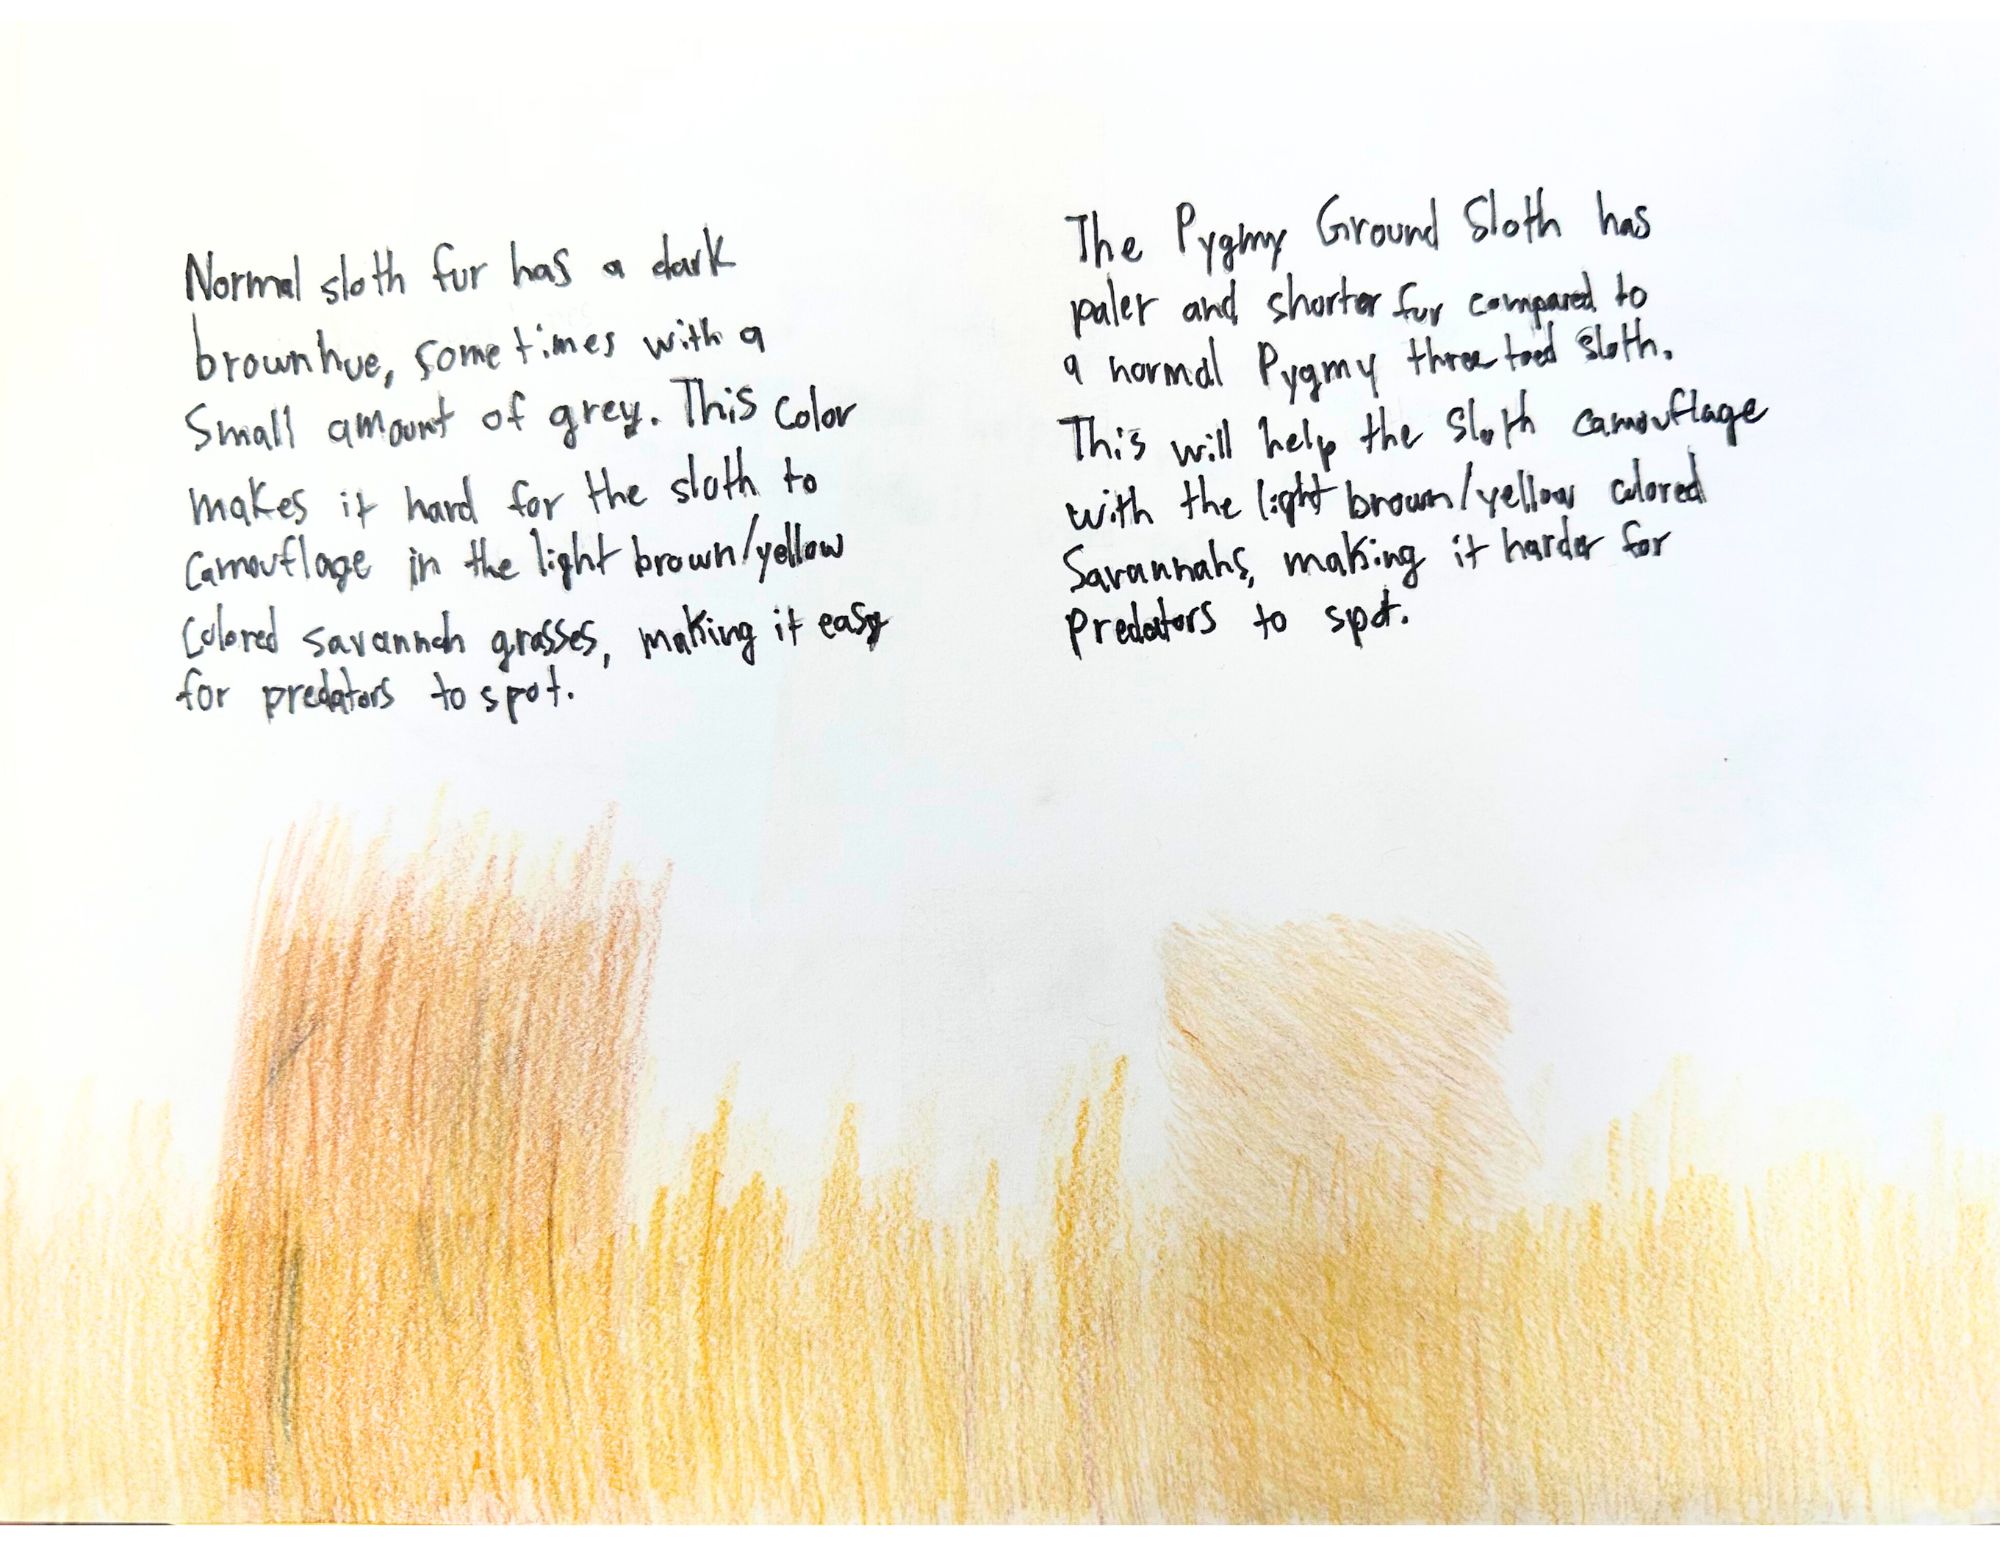 Normal sloth fur has a dark
brown hue, some times with a
small amount of grey. This color
makes it hard for the sloth to
camouflage in the light brown/yellow
colored savannah grasses, making it easy
for predators to spot.
The Pygmy Ground Sloth has
paler and shorter fur compared to
a normal Pygmy three toed sloth.
This will help the sloth camouflage
with the light brown/yellow colored
Savannahs, making it harder for
predators to spot.